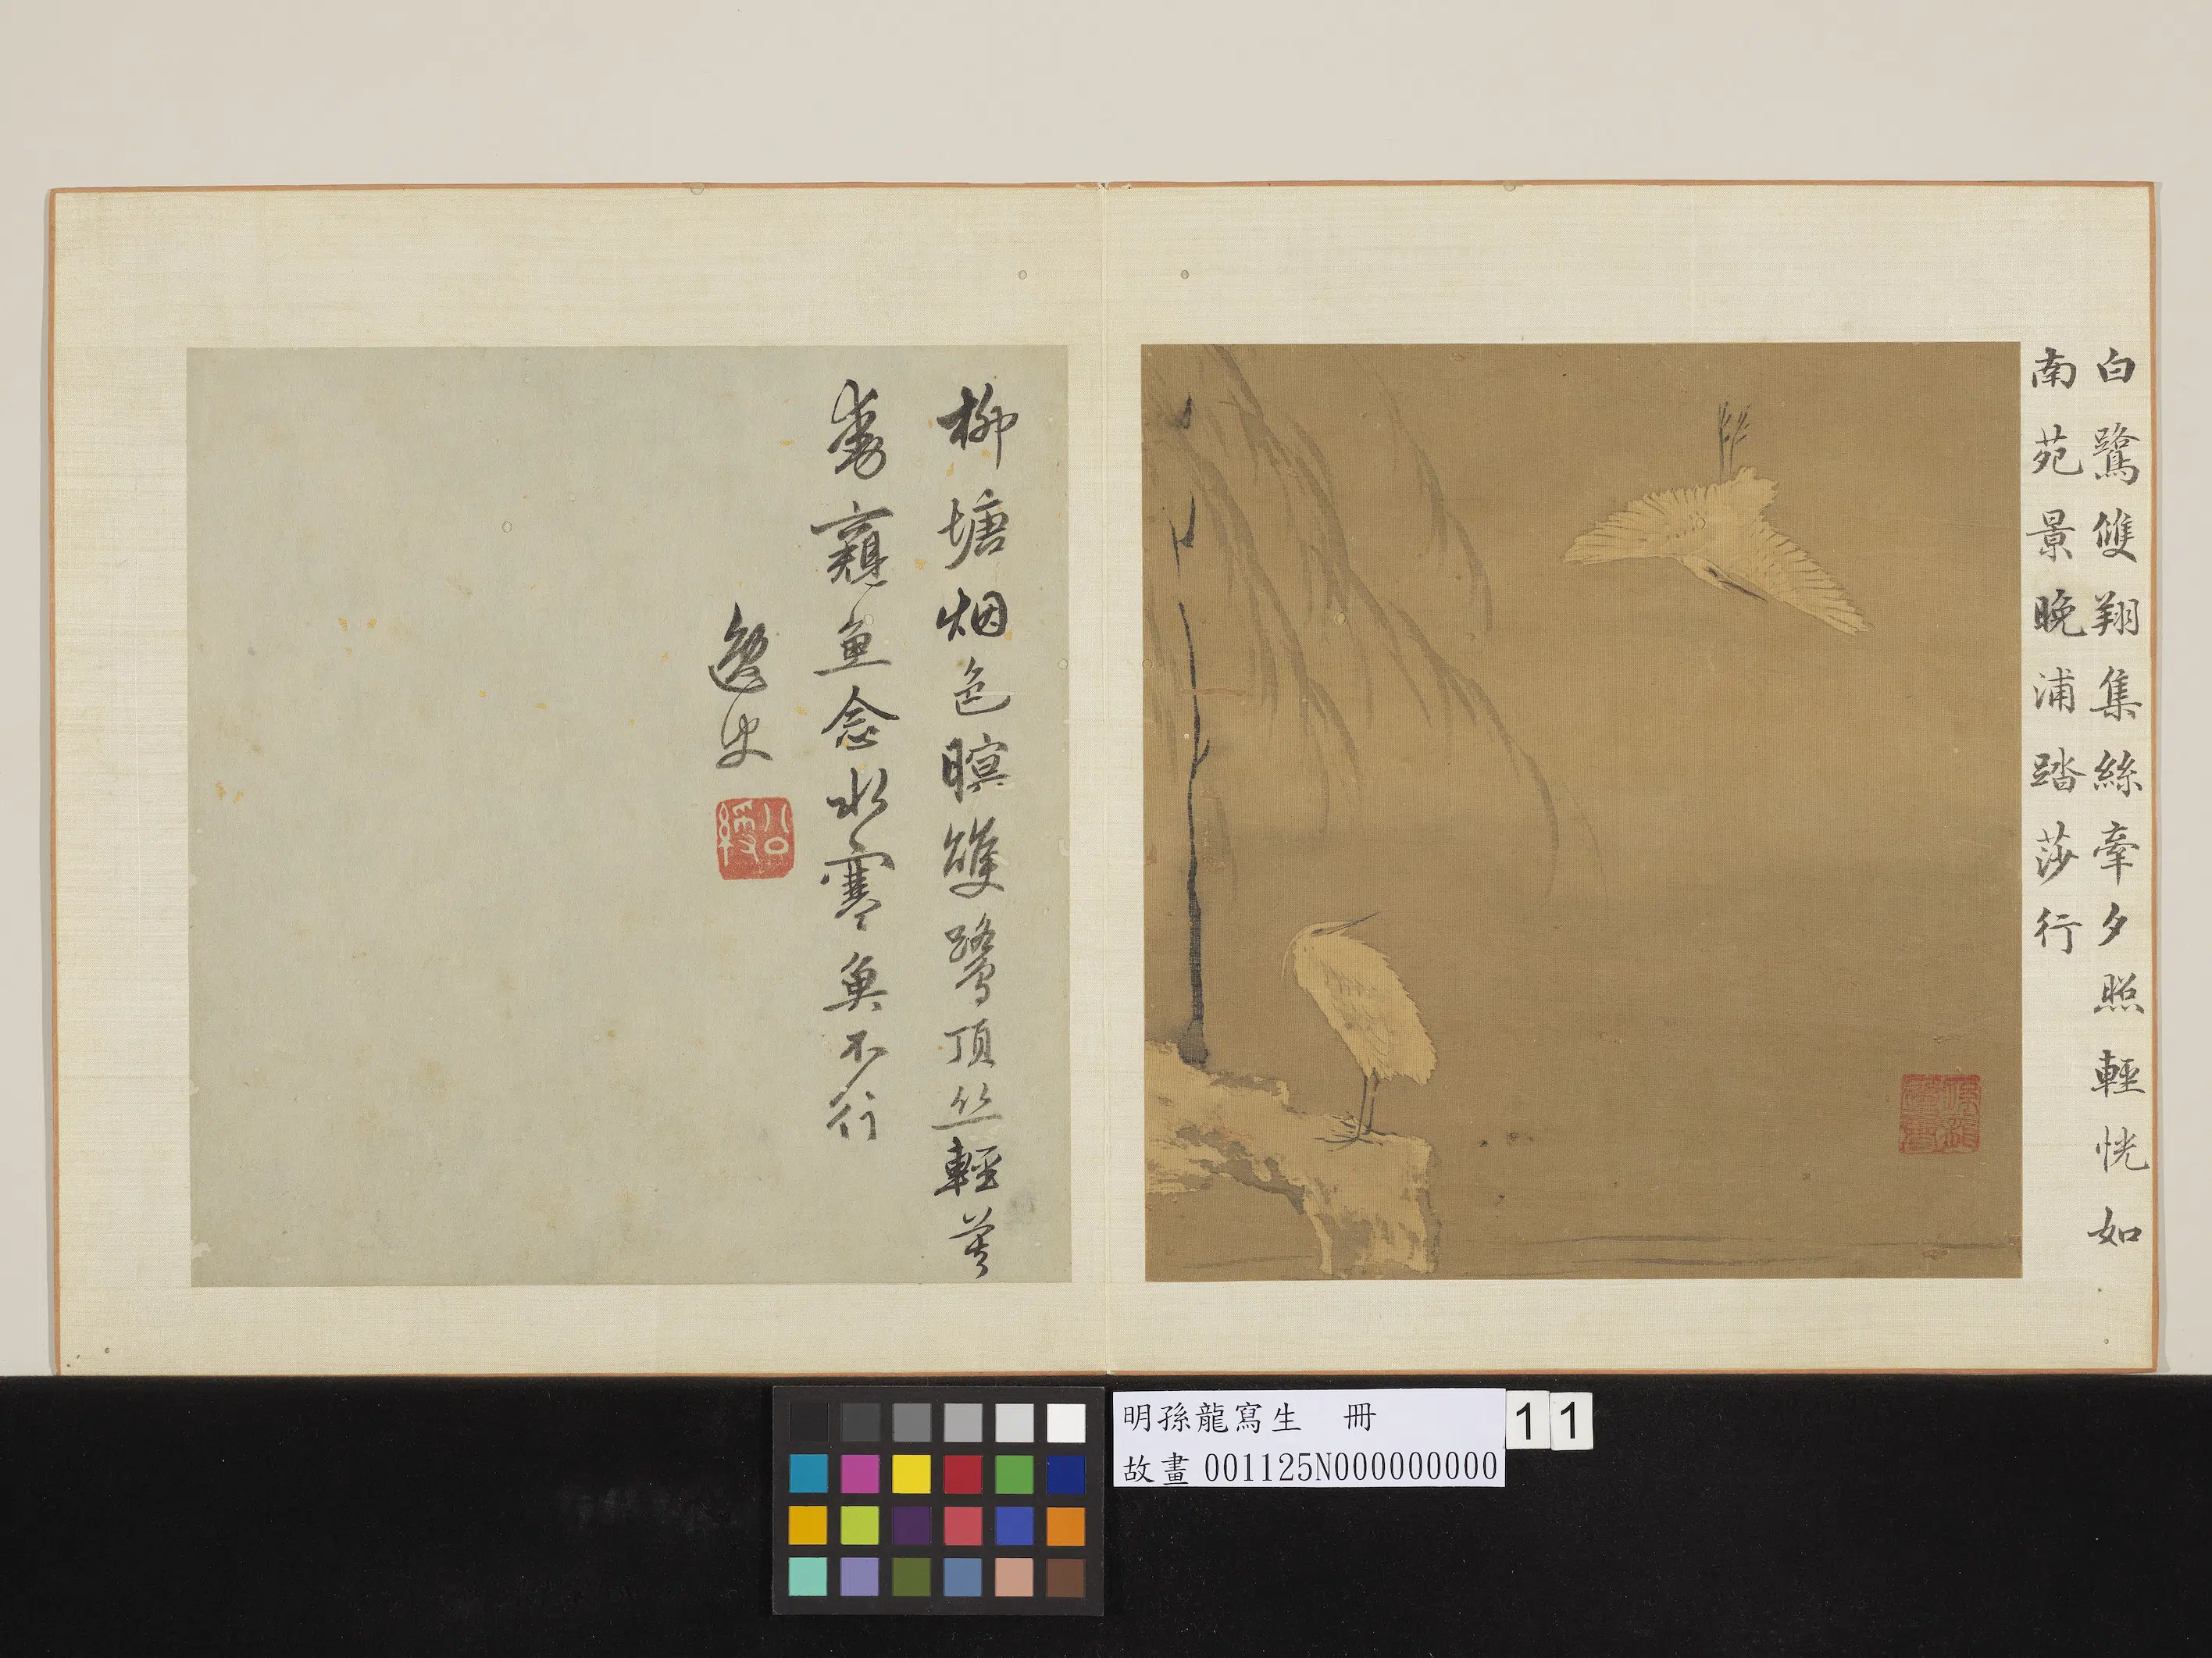 白鷺雙翔集絲牽夕照輕恍如
南苑景晚浦踏莎行
柳塘烟色暝雙鷺頂丝輕莫
窺魚念水寒魚不行
逸史
明孫龍寫生 冊
故畫 001125N000000000
11